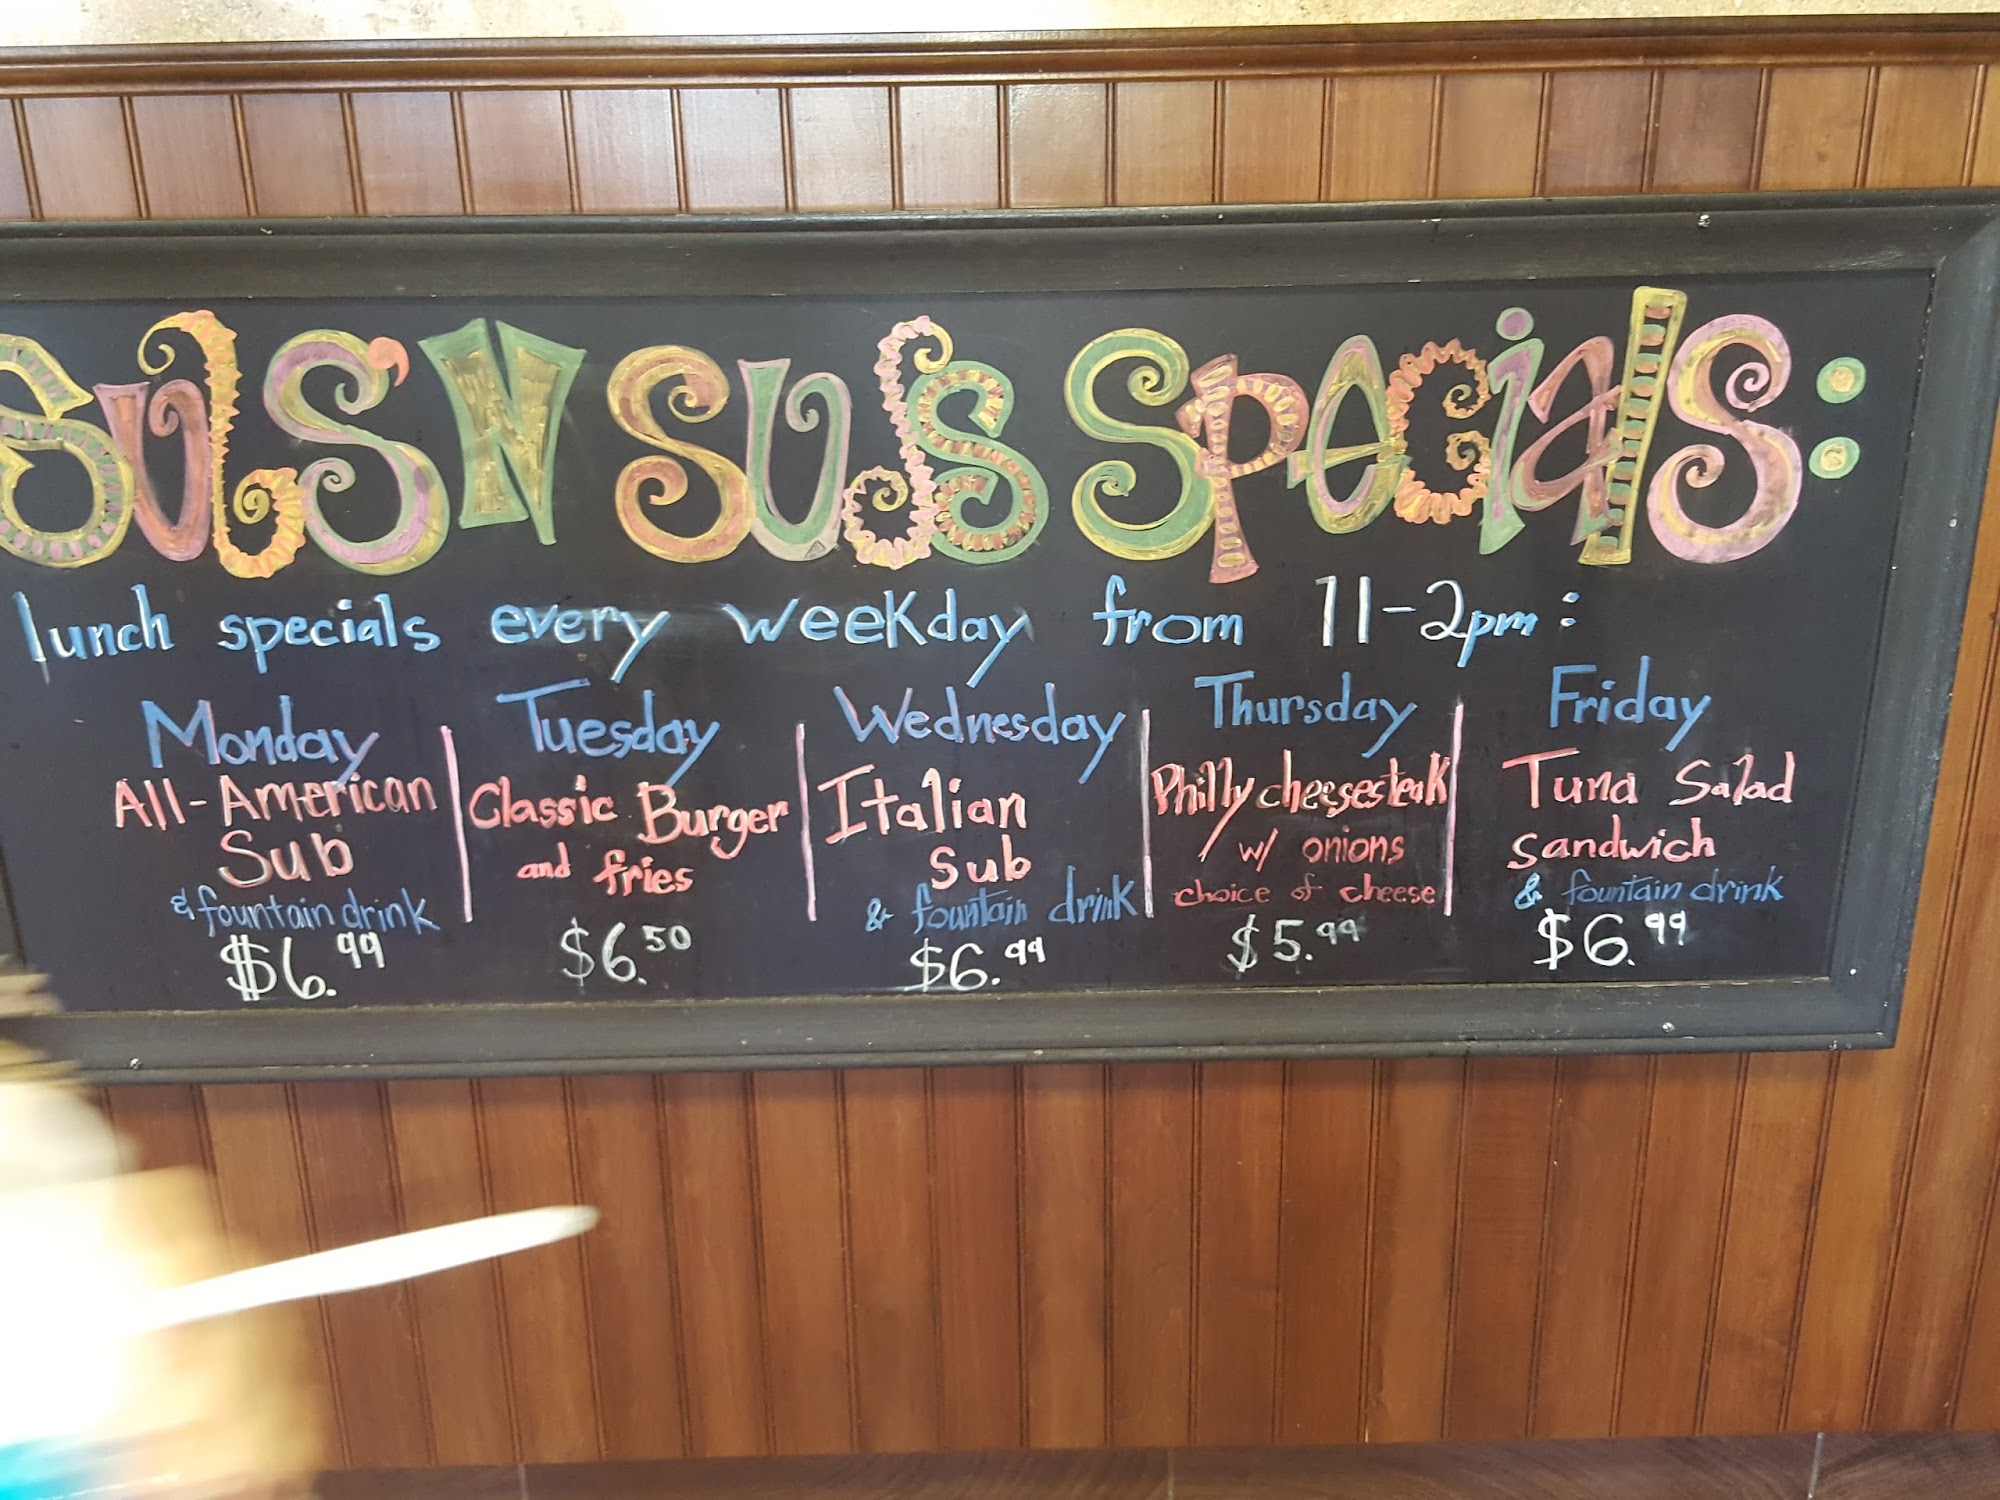 SULS'N SUJS SPECIALS:
lunch specials every weekday from 11-2pm:
Monday
All-American
Sub
& fountain drink
$6.99
Tuesday
Classic Burger
and fries
$6.50
Wednesday
Italian
Sub
& fountain drink
$6.99
Thursday
Philly cheesesteak
w/ onions
choice of cheese
$5.99
Friday
Tuna Salad
Sandwich
& fountain drink
$6.99